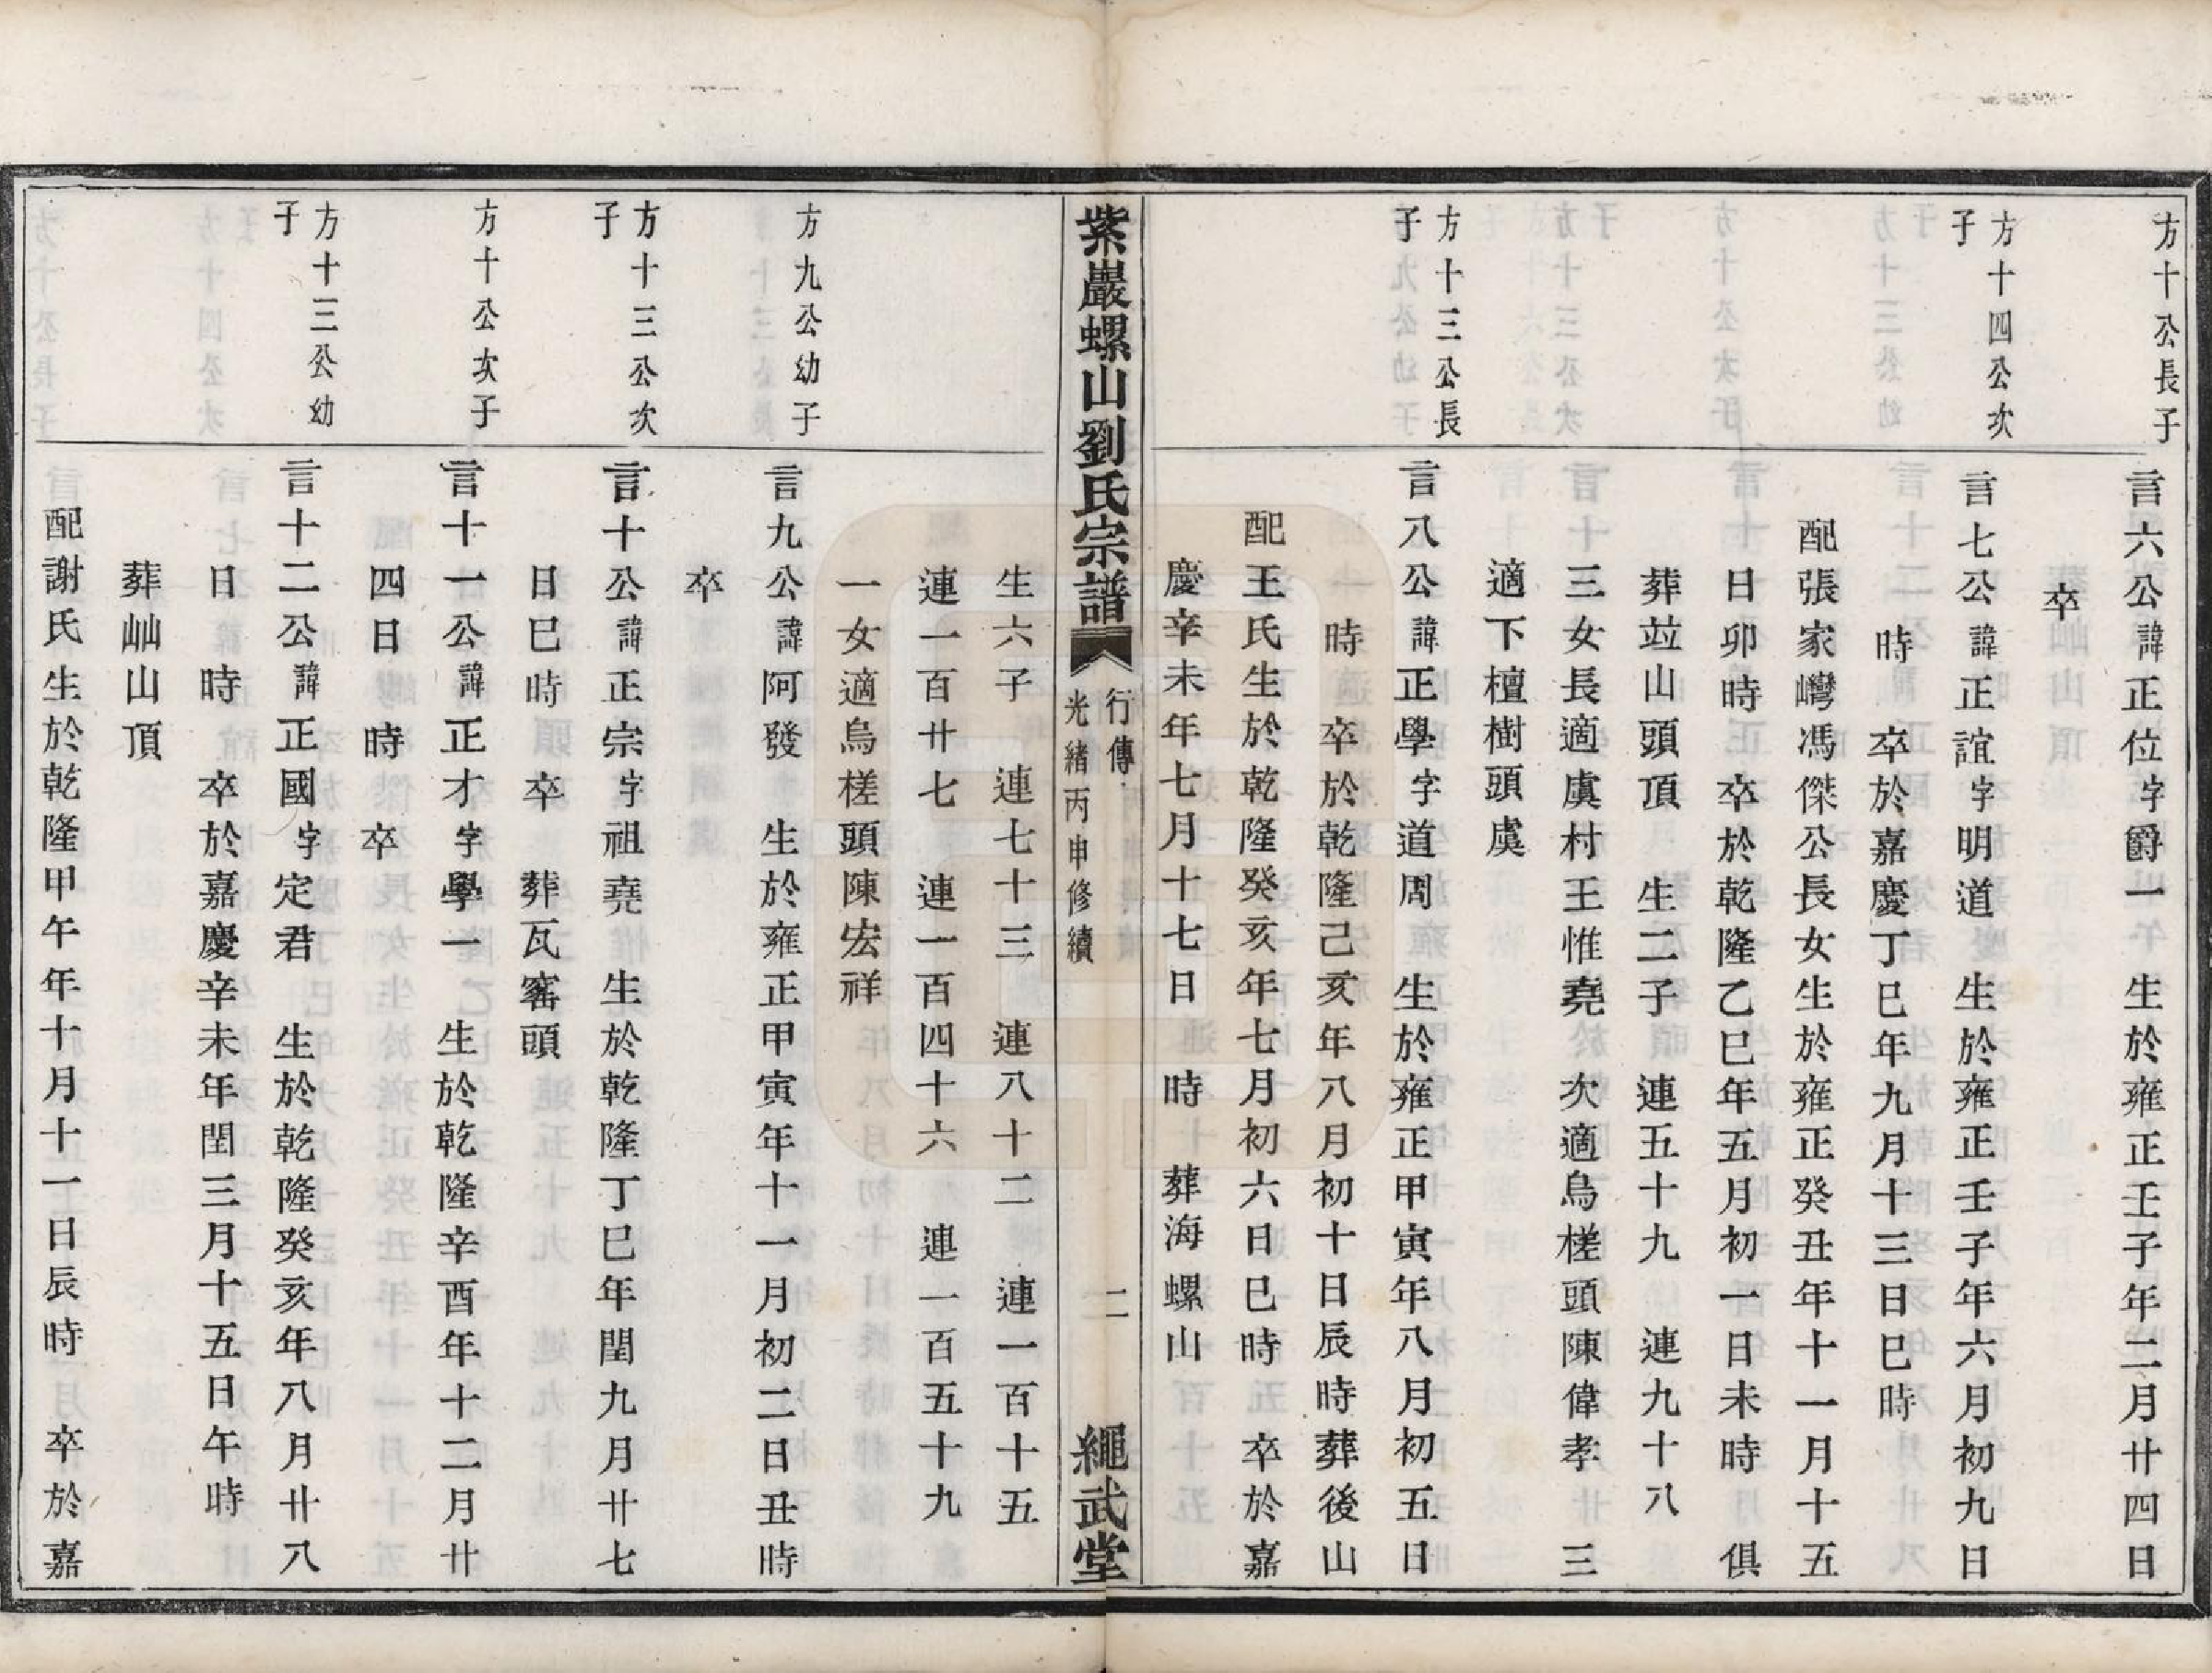 方十公長子
言六公諱正位字爵一　生於雍正壬子年二月廿四日
卒
方十四公次
子
言七公諱正誼字明道　生於雍正壬子年六月初九日
時　卒於嘉慶丁巳年九月十三日巳時
配張家巒馮傑公長女生於雍正癸丑年十一月十五
日卯時　卒於乾隆乙巳年五月初一日未時　俱
葬竝山頭頂　生二子　連五十九　連九十八
三女長適虞村王惟堯　次適烏槎頭陳偉孝　三
適下檀樹頭虞
方十三公長
子
言八公諱正學字道周　生於雍正甲寅年八月初五日
時　卒於乾隆己亥年八月初十日辰時葬後山
配王氏生於乾隆癸亥年七月初六日巳時　卒於嘉
慶辛未年七月十七日　時　葬海螺山
紫巖螺山劉氏宗譜
行傳
光緒丙申修續
二
繩武堂
生六子　連七十三　連八十二　連一百十五
連一百廿七　連一百四十六　連一百五十九
一女適烏槎頭陳宏祥
方九公幼子
言九公諱阿發　生於雍正甲寅年十一月初二日丑時
卒
方十三公次
子
言十公諱正宗字祖堯　生於乾隆丁巳年閏九月廿七
日巳時　卒　葬瓦窰頭
方十公次子
言十一公諱正才字學一　生於乾隆辛酉年十二月廿
四日　時　卒
方十三公幼
子
言十二公諱正國字定君　生於乾隆癸亥年八月廿八
日　時　卒於嘉慶辛未年閏三月十五日午時
葬岫山頂
配謝氏生於乾隆甲午年十月十一日辰時　卒於嘉